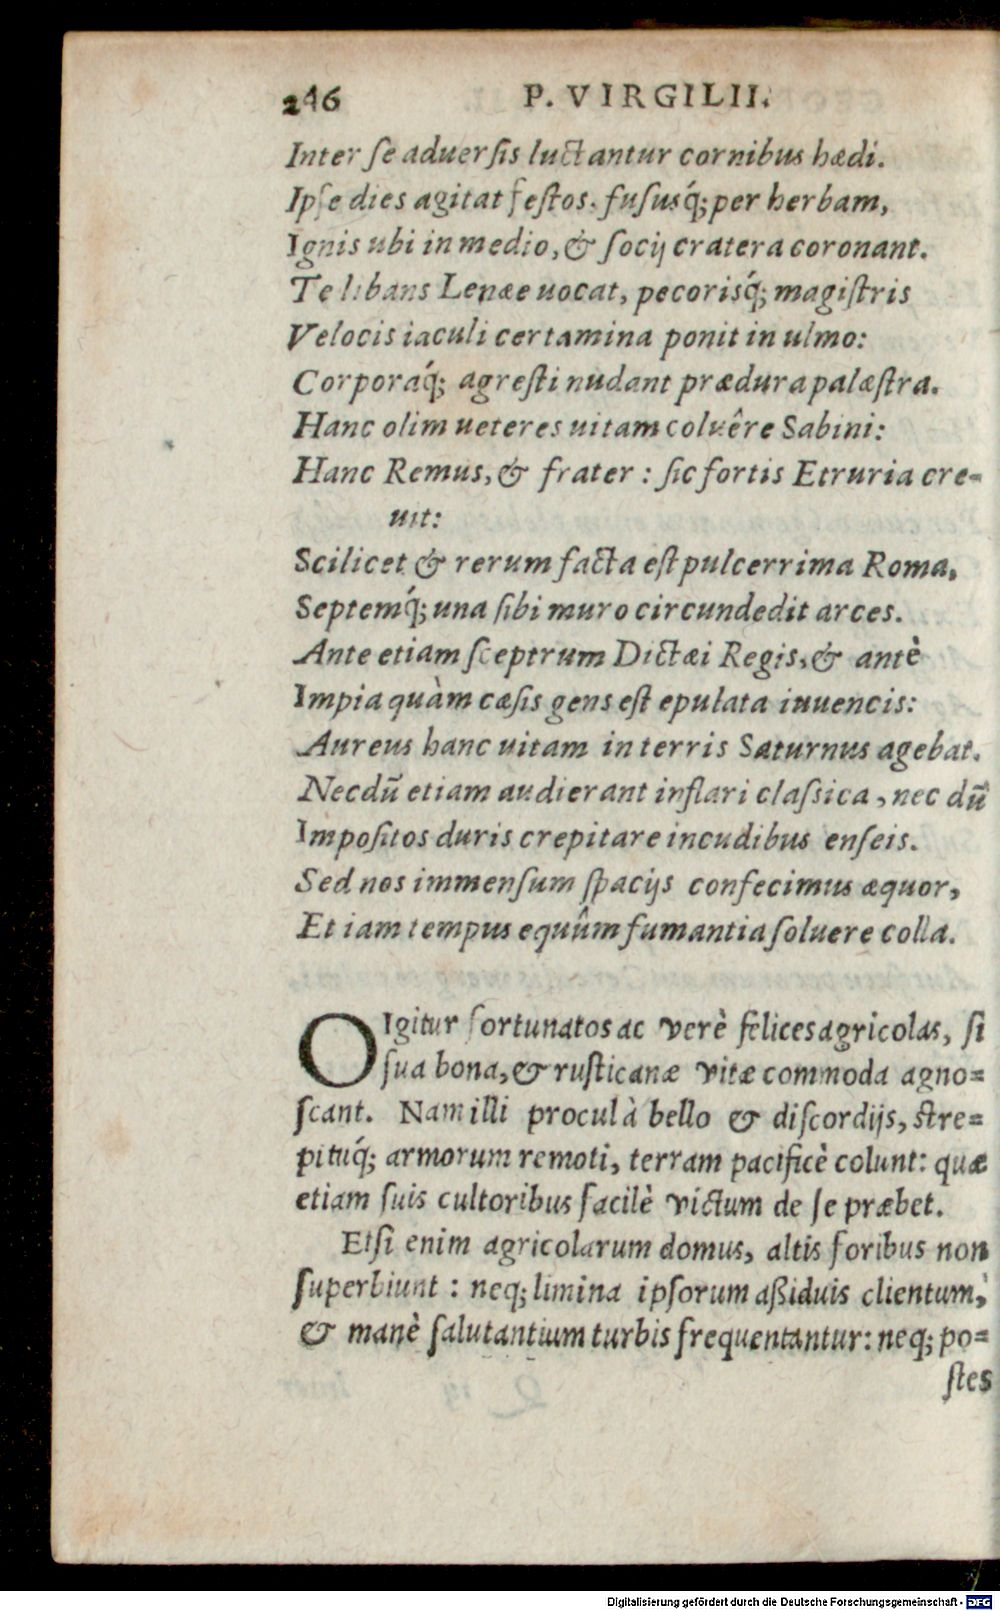 246 P. VIRGILII.
Inter ſe aduerſis luctantur cornibus hædi.
Ipſe dies agitat feſtos. fuſusq́; per herbam,
Ignis ubi in medio, & ſocij cratera coronant.
Te libans Lenæe uocat, pecorisq́; magiſtris
Velocis iaculi certamina ponit in ulmo:
Corporaq́; agreſti nudant prædura palæſtra.
Hanc olim ueteres uitam coluêre Sabini:
Hanc Remus, & frater : ſic fortis Etruria cre-
uit:
Scilicet & rerum facta eſt pulcerrima Roma,
Septemq́; una ſibi muro circundedit arces.
Ante etiam ſceptrum Dictæi Regis, & antè
Impia quàm cæſis gens eſt epulata iuuencis:
Aureus hanc uitam in terris Saturnus agebat.
Necdũ etiam audierant inflari claſsica, nec dũ
Impoſitos duris crepitare incudibus enſeis.
Sed nos immenſum ſpacijs confecimus æquor,
Et iam tempus equûm fumantia ſoluere colla.
O Igitur fortunatos ac verè felices agricolas, ſi
ſua bona, & ruſticanæ vitæ commoda agno-
ſcant. Nam illi procul à bello & diſcordijs, ſtre-
pituq́; armorum remoti, terram pacificè colunt: quæ
etiam ſuis cultoribus facilè victum de ſe præbet.
Etſi enim agricolarum domus, altis foribus non
ſuperbiunt : neq; limina ipſorum aßiduis clientum,
& manè ſalutantium turbis frequentantur: neq; po-
ſtes
Digitalisierung gefördert durch die Deutsche Forschungsgemeinschaft - DFG